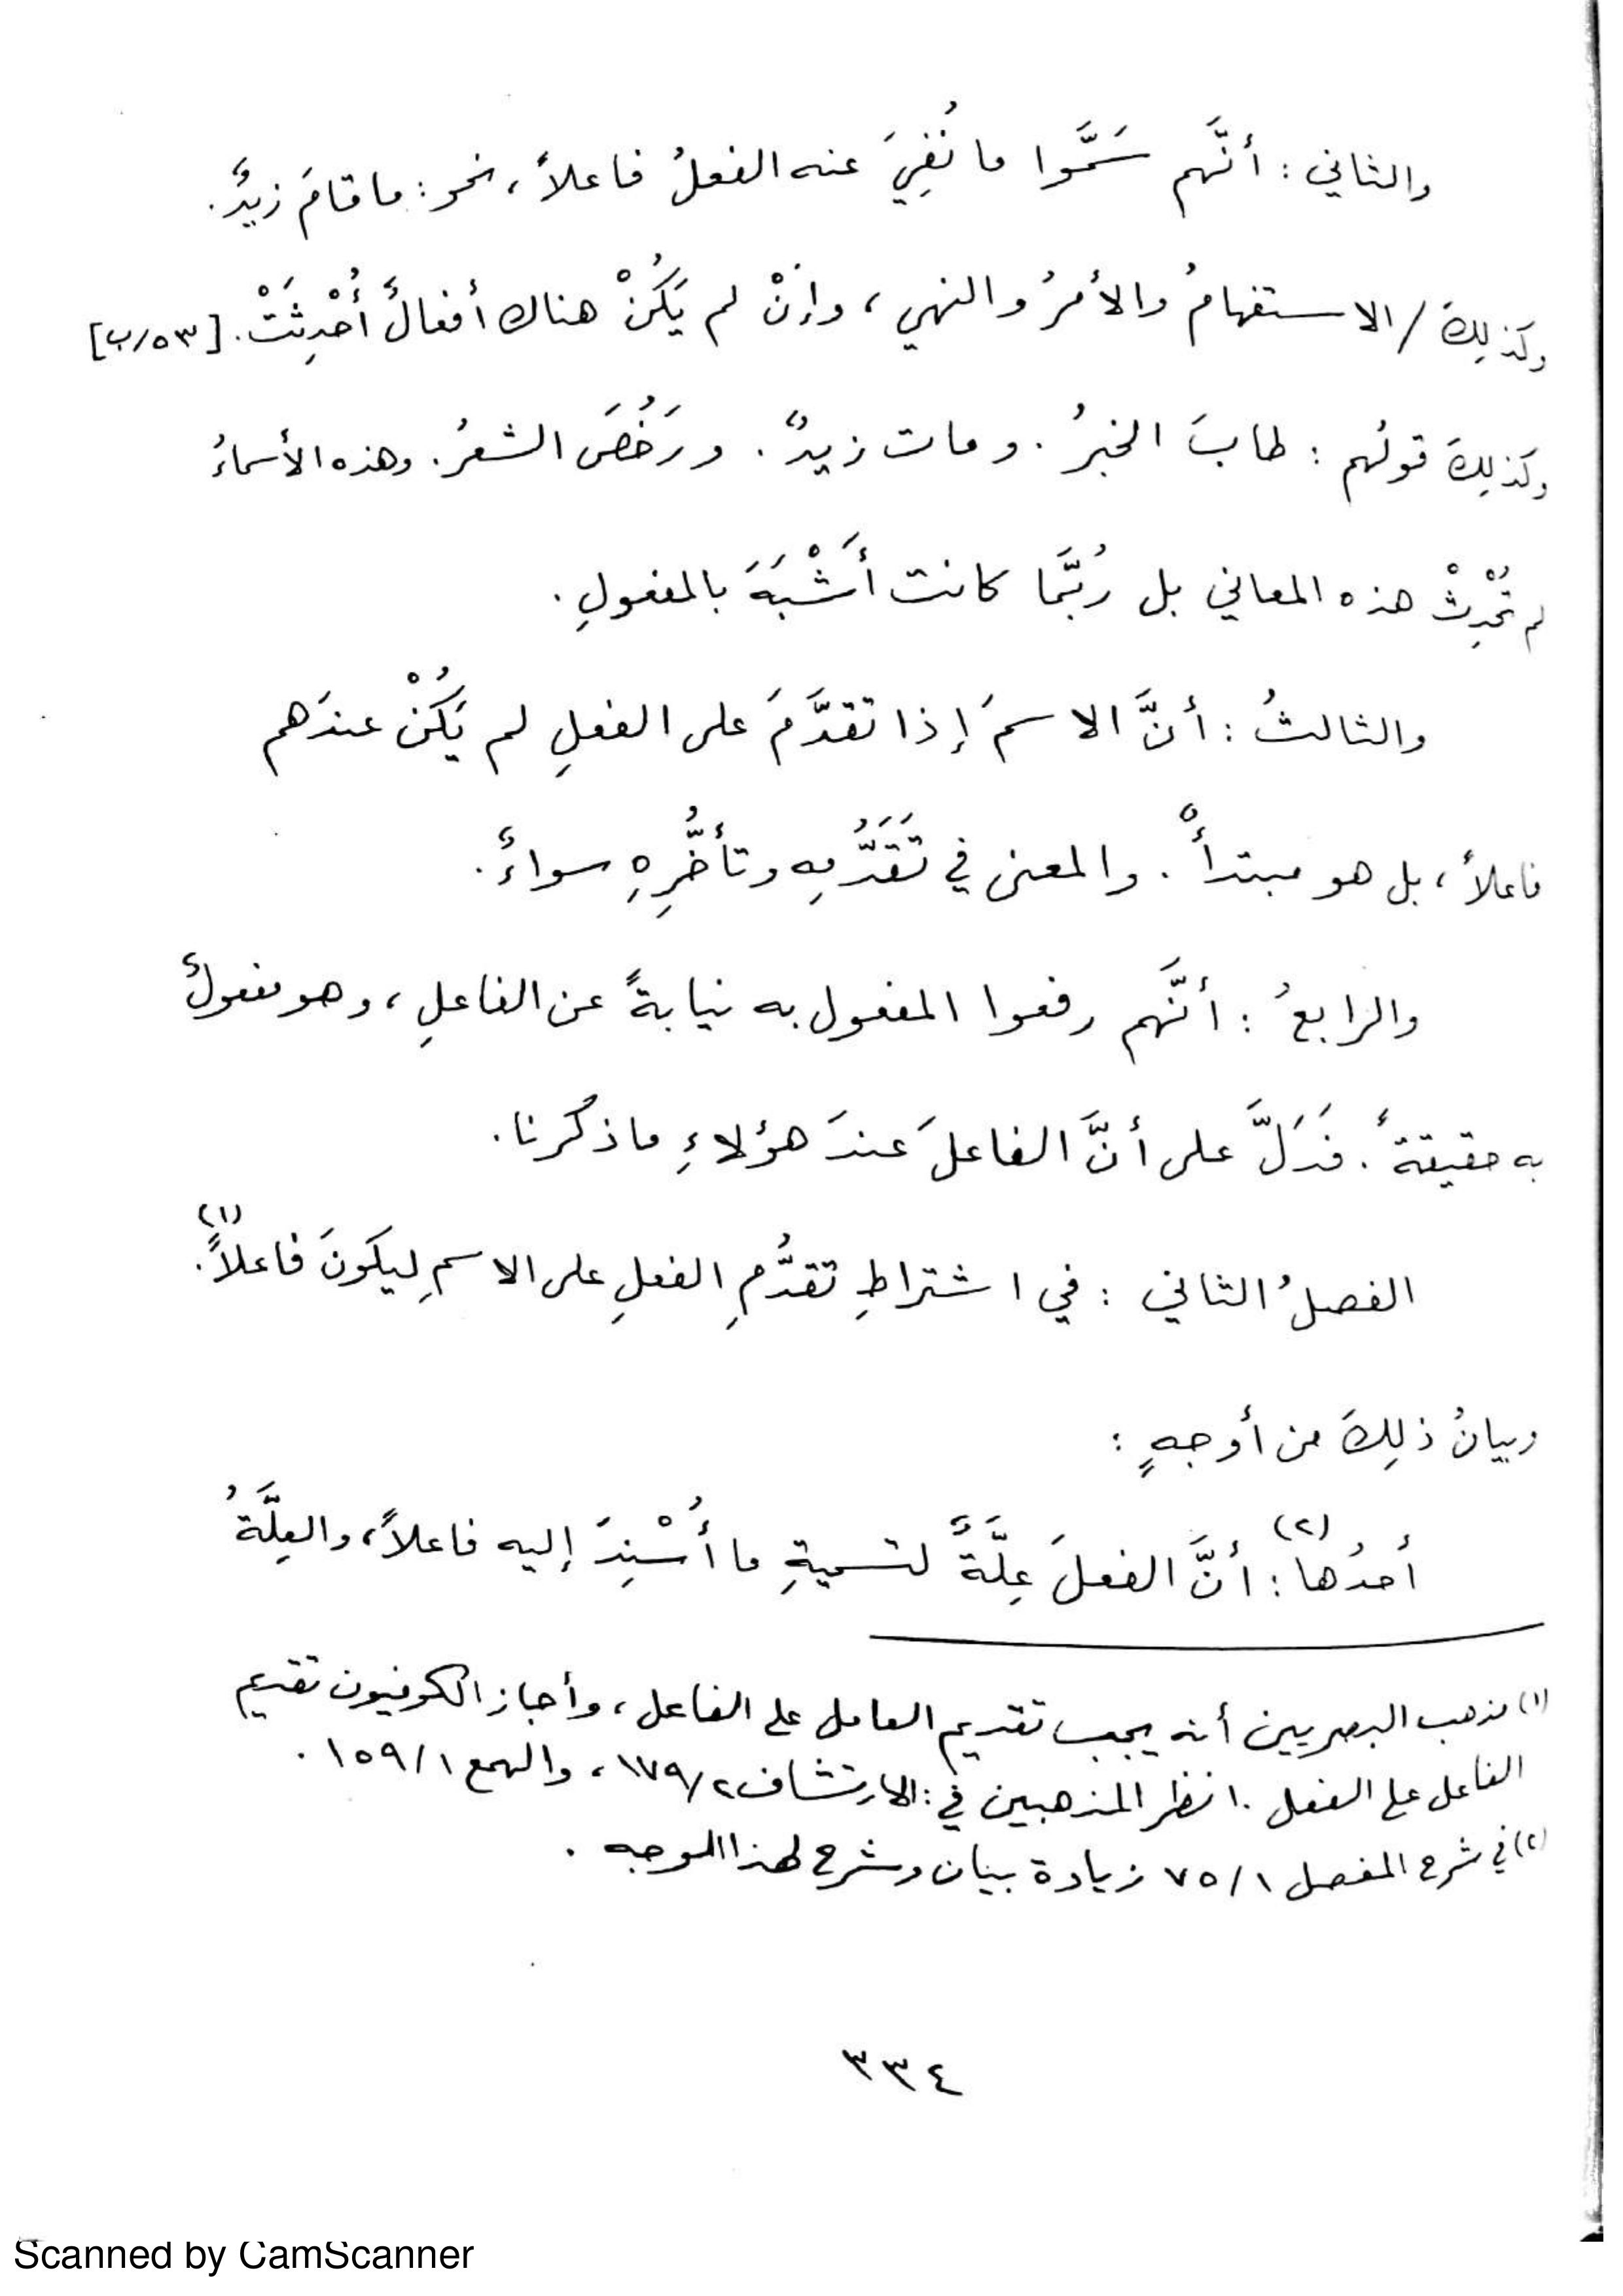 والثاني : أنَّهم سَمَّوا ما نُفِيَ عنه الفعلُ فاعلاً، نحو: ما قامَ زيدٌ.
وكذلِكَ / الاستفهامُ والأمرُ والنهي ، وإنْ لم يَكُنْ هناك أفعالٌ أُحْدِثَتْ. [٥٣/ب]
وكذلِكَ قولُهم : طابَ الخبرُ . ومات زيدٌ . ورَخُصَ الشعرُ. وهذه الأسماءُ
لم تُحْدِثْ هذه المعاني بل رُبَّما كانت أَشْبَهَ بالمفعولِ .
والثالثُ : أنَّ الاسمَ إذا تقدَّمَ على الفعلِ لم يَكُنْ عندَهم
فاعلاً ، بل هو مبتدأٌ . والمعنى في تَقَدُّمِه وتأخُّرِهِ سواءٌ .
والرابعُ : أنَّهم رفعوا المفعول به نيابةً عن الفاعلِ ، وهو مفعولٌ
به حقيقةً . فدَلَّ على أنَّ الفاعلَ عندَ هؤلاءِ ما ذكرنا .
الفصلُ الثاني : في اشتراطِ تقدُّمِ الفعلِ على الاسمِ لِيكونَ فاعلاً(١).
وبيانُ ذلِكَ من أوجهٍ :
أحدُها(٢) : أنَّ الفعلَ عِلَّةً لتسميةِ ما أُسْنِدَ إليه فاعلاً، والعِلَّةُ
(١) مذهب البصريين أنه يجب تقديم العامل على الفاعل ، وأجاز الكوفيون تقديم
الفاعل على الفعل . انظر المذهبين في : الارتشاف ١٧٩/٢ ، والهمع ١٥٩/١ .
(٢) في شرح المفصل ٧٥/١ زيادة بيان وشرح لهذا الوجه .
٣٣٤
Scanned by CamScanner